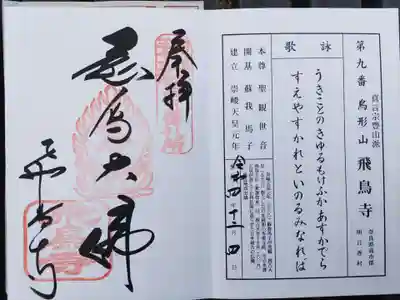 真言宗豊山派
第九番 鳥形山 飛鳥寺
奈良県高市郡
明日香村
詠歌
うきことのきゆるもけふかあすかでら
すえやすかれといのるみなれは
本尊 聖観世音
開基 蘇我馬子
建立 崇峻天皇元年
令和四年十二月四日
奉拝
飛鳥大佛
飛鳥寺